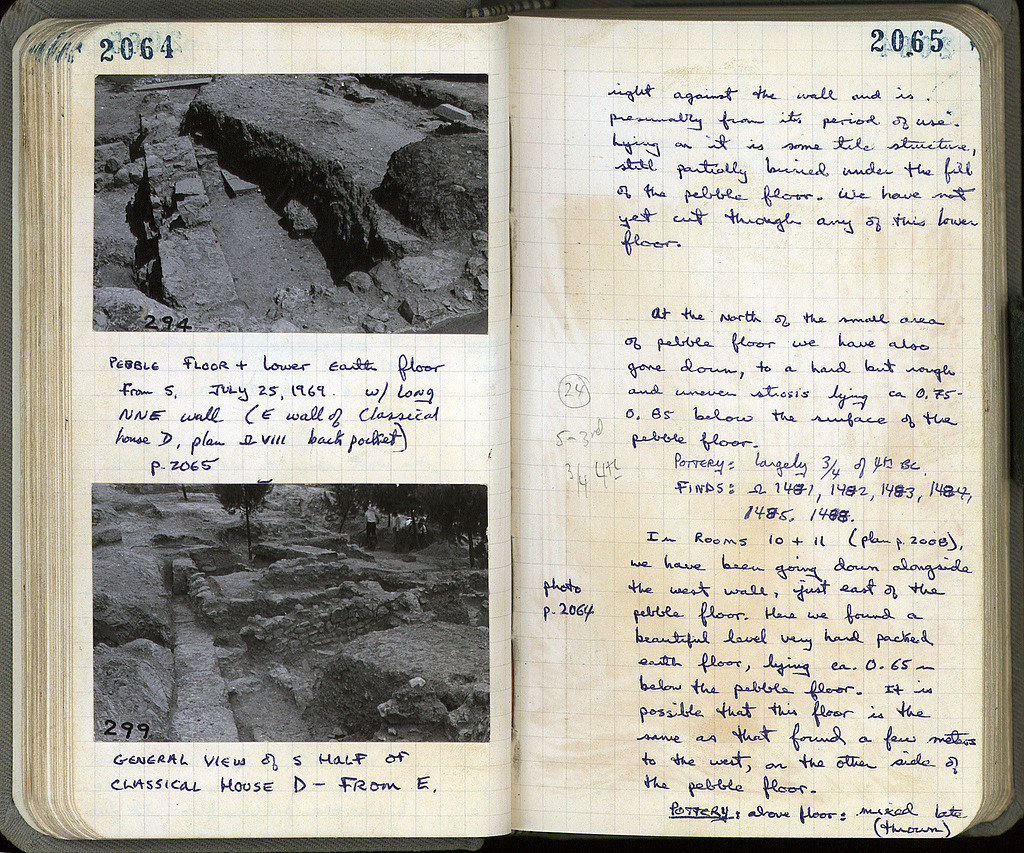 2064
294
PEBBLE FLOOR + Lower Earth floor
from S, JULY 25, 1969. w/ LONG
NNE wall (E wall of Classical
house D, plan Ω VIII back pocket)
p. 2065
299
GENERAL VIEW of S HALF OF
CLASSICAL HOUSE D - FROM E.
2065
right against the wall and is
presumably from its period of use.
Lying on it is some tile structure,
still partially buried under the fill
of the pebble floor. We have not
yet cut through any of this lower
floor.
At the North of the small area
of pebble floor we have also
gone down, to a hard but rough
and uneven strosis lying ca 0.75-
0.85 below the surface of the
pebble floor.
24
5-3rd
3/4 4th
POTTERY: Largely 3/4 of 4th BC.
FINDS: Ω 1481, 1482, 1483, 1484,
1485, 1488.
In Rooms 10 + 11 (plan p. 2008),
we have been going down alongside
the west wall, just east of the
photo
p. 2064
pebble floor. Here we found a
beautiful level very hard packed
earth floor, lying ca. 0.65 m
below the pebble floor. It is
possible that this floor is the
same as that found a few meters
to the west, on the other side of
the pebble floor.
POTTERY: above floor: mixed late
(thrown)